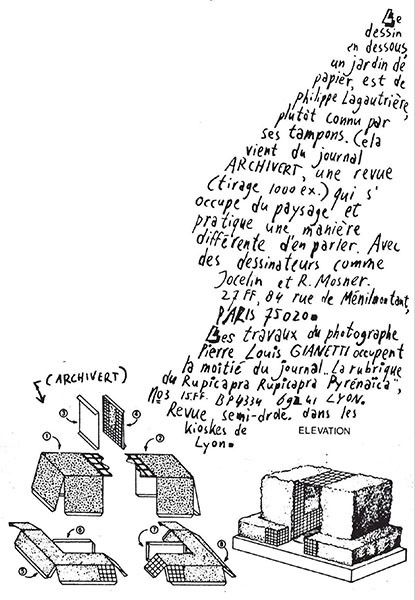 Le
dessin
en dessous,
un jardin de
papier, est de
philippe Lagautrière,
plutôt connu par
ses tampons. Cela
vient du journal
ARCHIVERT, une revue
(tirage 1000 ex.) qui s'
occupe du paysage et
pratique une manière
différente d'en parler. Avec
des dessinateurs comme
Jocelin et R. Mosner.
27 FF, 84 rue de Ménilmontant,
PARIS 75020.
Les travaux du photographe
Pierre Louis GIANETTI occupent
la moitié du journal "La rubrique
du Rupicapra Rupicapra Pyrenaïca",
No3 15.FF. BP4334 69241 LYON.
Revue semi-drole. dans les
kioskes de
Lyon.
(ARCHIVERT)
ELEVATION
3
4
1
2
6
7
5
8